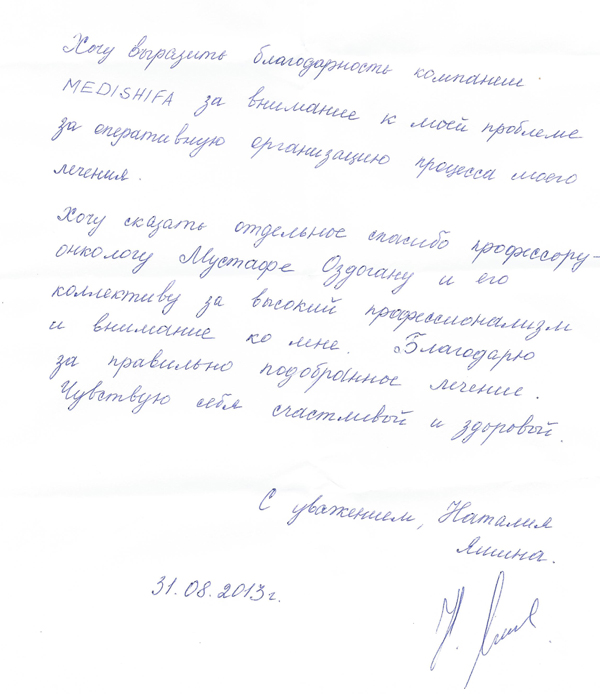 Хочу выразить благодарность компании
MEDISHIFA за внимание к моей проблеме
за оперативную организацию процесса моего
лечения.
Хочу сказать отдельное спасибо профессору-
онкологу Мустафе Оздогану и его
коллективу за высокий профессионализм
и внимание ко мне. Благодарю
за правильно подобранное лечение.
Чувствую себя счастливой и здоровой.
С уважением, Наталия
Яшина.
31.08.2013г.